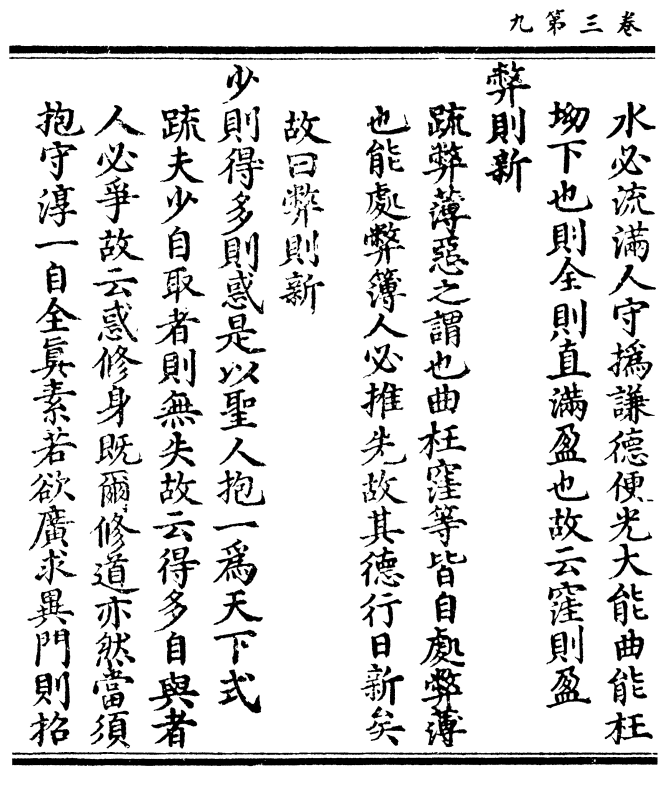 卷三第九
水必流滿人守撝謙德便光大能曲能枉
坳下也則全則直滿盈也故云窪則盈
弊則新
疏弊薄惡之謂也曲枉窪等皆自處弊薄
也能處弊簿人必推先故其德行日新矣
故曰弊則新
少則得多則惑是以聖人抱一爲天下式
疏夫少自取者則無失故云得多自與者
人必爭故云惑修身既爾修道亦然當須
抱守淳一自全眞素若欲廣求異門則招